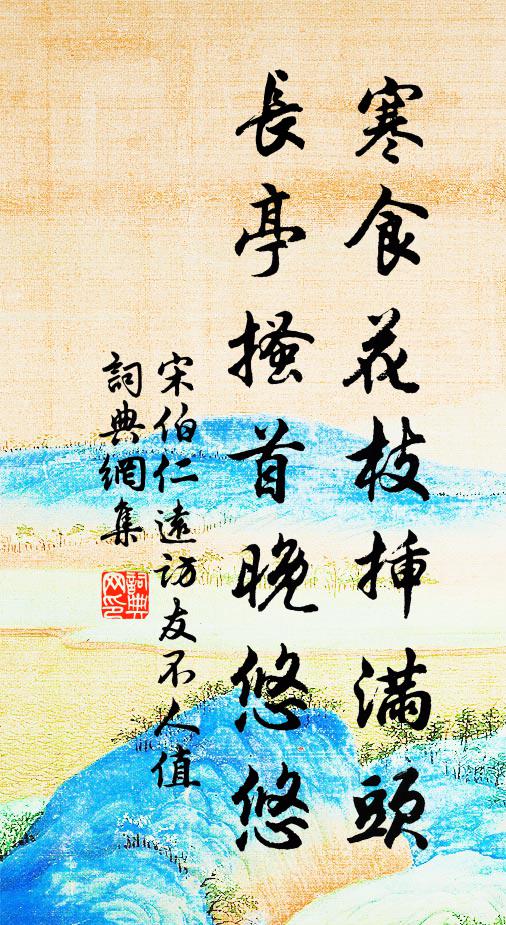 寒食花枝插滿頭
長亭搔首晚悠悠
宋伯仁遠訪友不人值
詞典網集
詞典網印